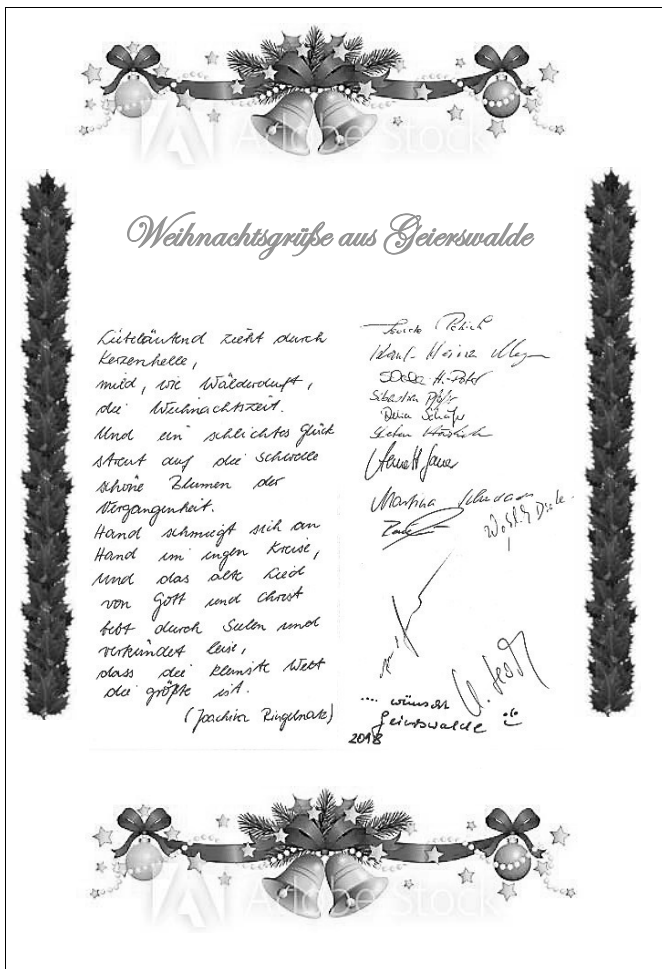 Adobe Stock
Weihnachtsgrüße aus Geierswalde
Liebeläutend zieht durch
Kerzenhelle,
mild, wie Wälderduft,
die Weihnachtszeit.
Und ein schlichtes Glück
streut auf die Schwelle
schöne Blumen der
Vergangenheit.
Hand schmiegt sich an
Hand im engen Kreise,
und das alte Lied
von Gott und Christ
bebt durch Seelen und
verkündet leise,
dass die kleinste Welt
die größte ist.
(Joachim Ringelnatz)
Karl-Heinz
Sebastian
Stefan
Martina
.... wünscht
Geierswalde
2018
Adobe Stock